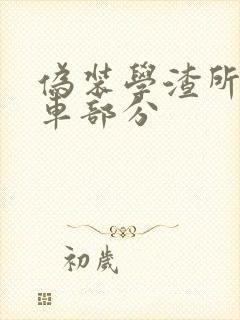 偽裝學渣所
車部分
初歲